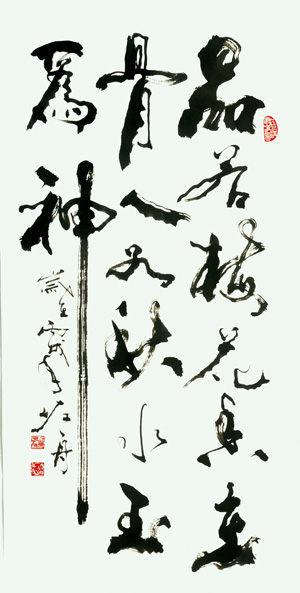 品若梅花香在
骨人如秋水玉
爲神
歲在丙戌